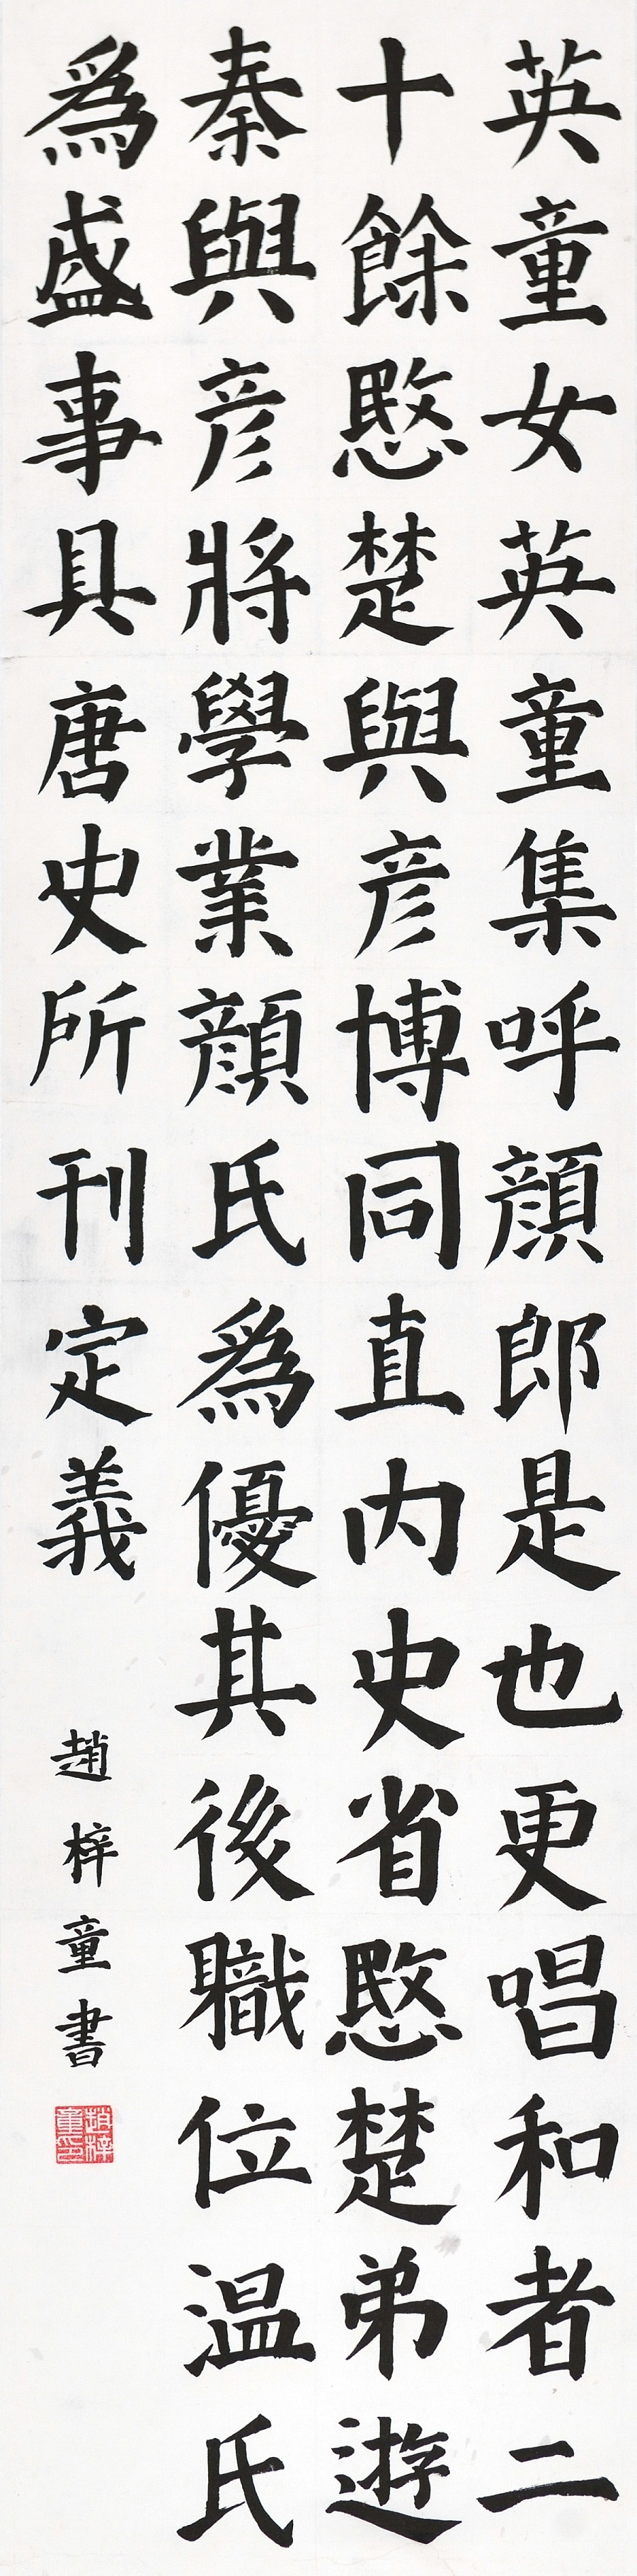 英童女英童集呼顏郎是也更唱和者二
十餘愍楚與彥博同直內史省愍楚弟遊
秦與彥將學業顏氏為優其後職位溫氏
為盛事具唐史所刊定義
趙梓童書
趙梓童印